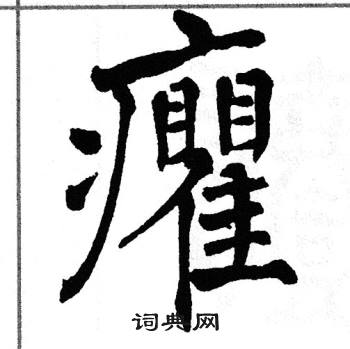 癯
词典网